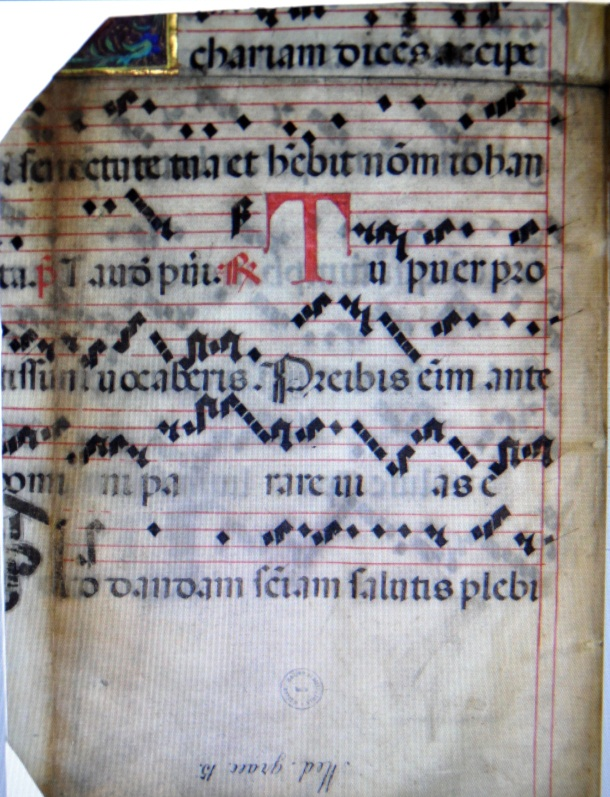 chariam dicēs accipe
senectute tua et hēbit nōm iohan
ta. P̄ Lauō pm̄i. R̸ Tu puer pro
tissimi uocaberis. Precibis eīm ante
omi ni pa rare ui as e
dandam sc̄iam salutis plebi
Med. graec. 15.